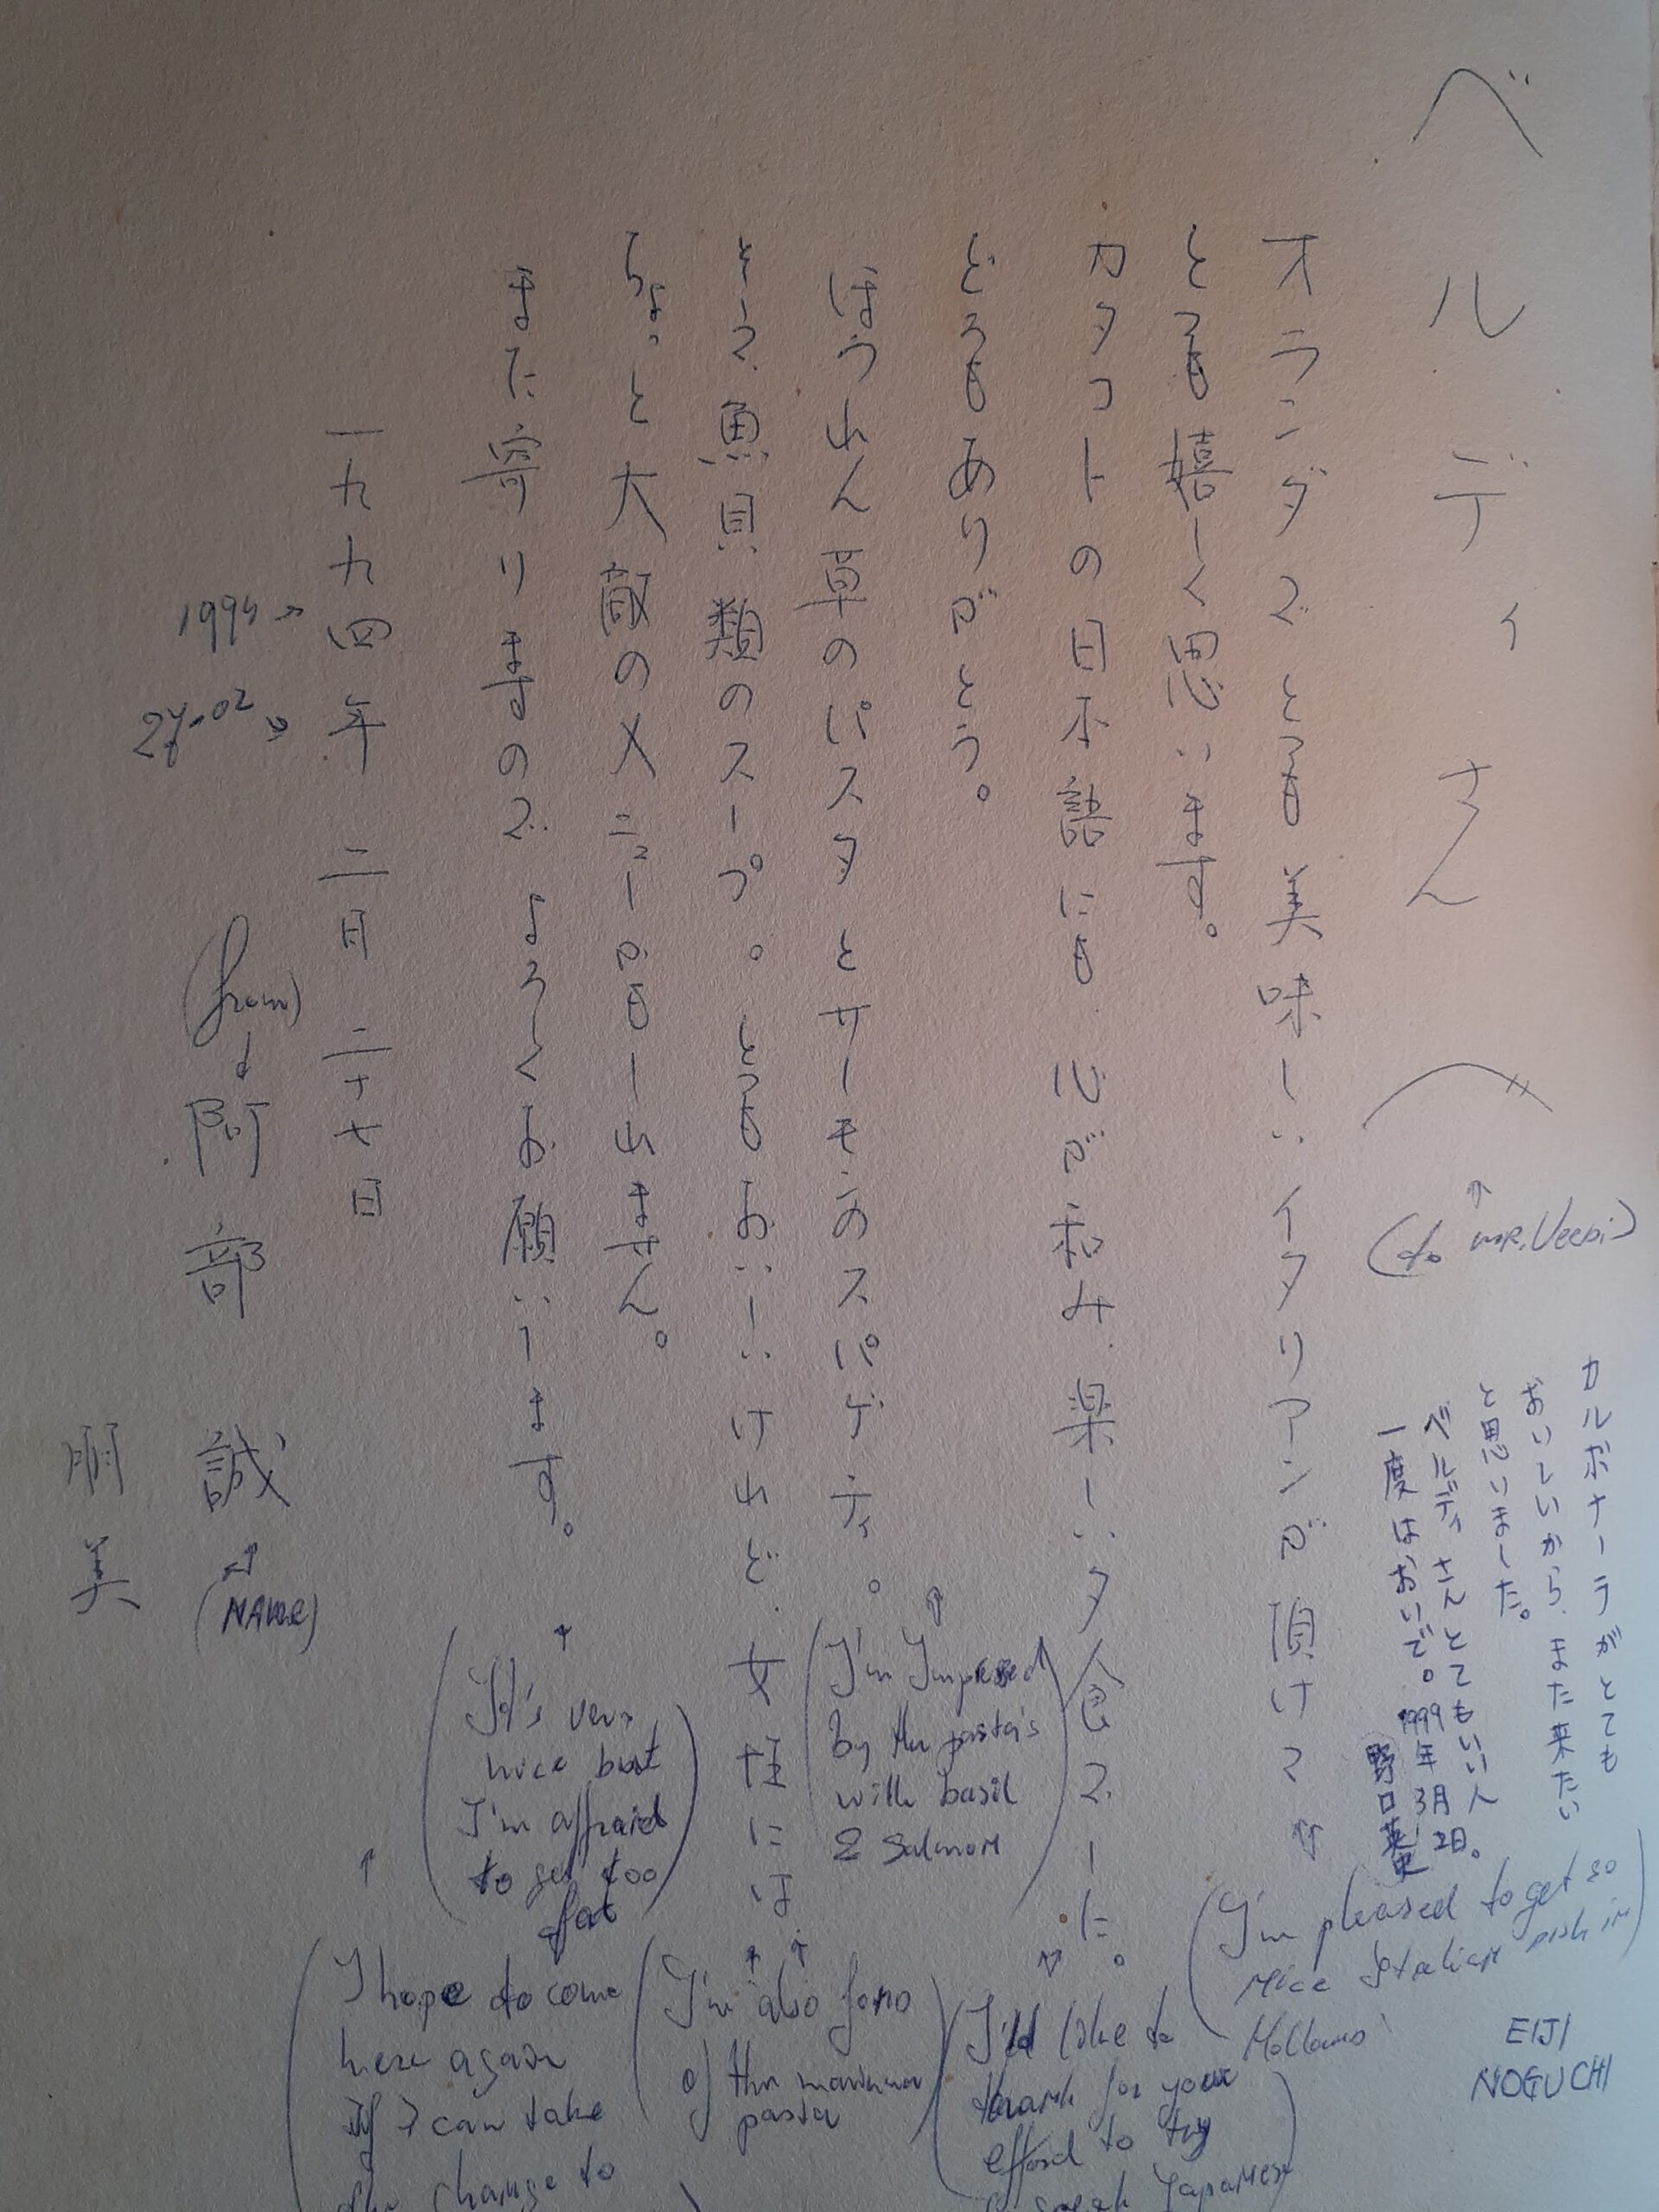 ベルディさんへ
オランダでとても美味しいイタリアンが頂けて
とても嬉しく思います。
カタコトの日本語にも心が和み、楽しい夕食でした。
どうもありがとう。
ほうれん草のパスタとサーモンのスパゲティ。
そして魚貝類のスープ。とてもおいしいけれど、女性には、
ちょっと大敵のメニューかもしれません。
また寄りますので、よろしくお願いします。
一九九四年 二月 二十七日
阿部 誠
明美
(to MR. Verdi)
カルボナーラがとても
おいしいから、また来たい
と思いました。
ベルディさんとてもいい人
一度はおいで。1999年3月2日。
野口英史
EIJI
NOGUCHI
(I'm pleased to get so
nice Italian dish in
Holland)
(I'ld like to
thank for your
efford to try
speak Japanese
(I'm Impressed
by the pasta's
with basil
& salmon)
(I'm also fond
of the marinara
pasta)
(It's very
nice but
I'm affraid
to get too
fat)
(I hope to come
here again
if I can take
the change to
1994 →
27-02 →
(from)
(NAME)